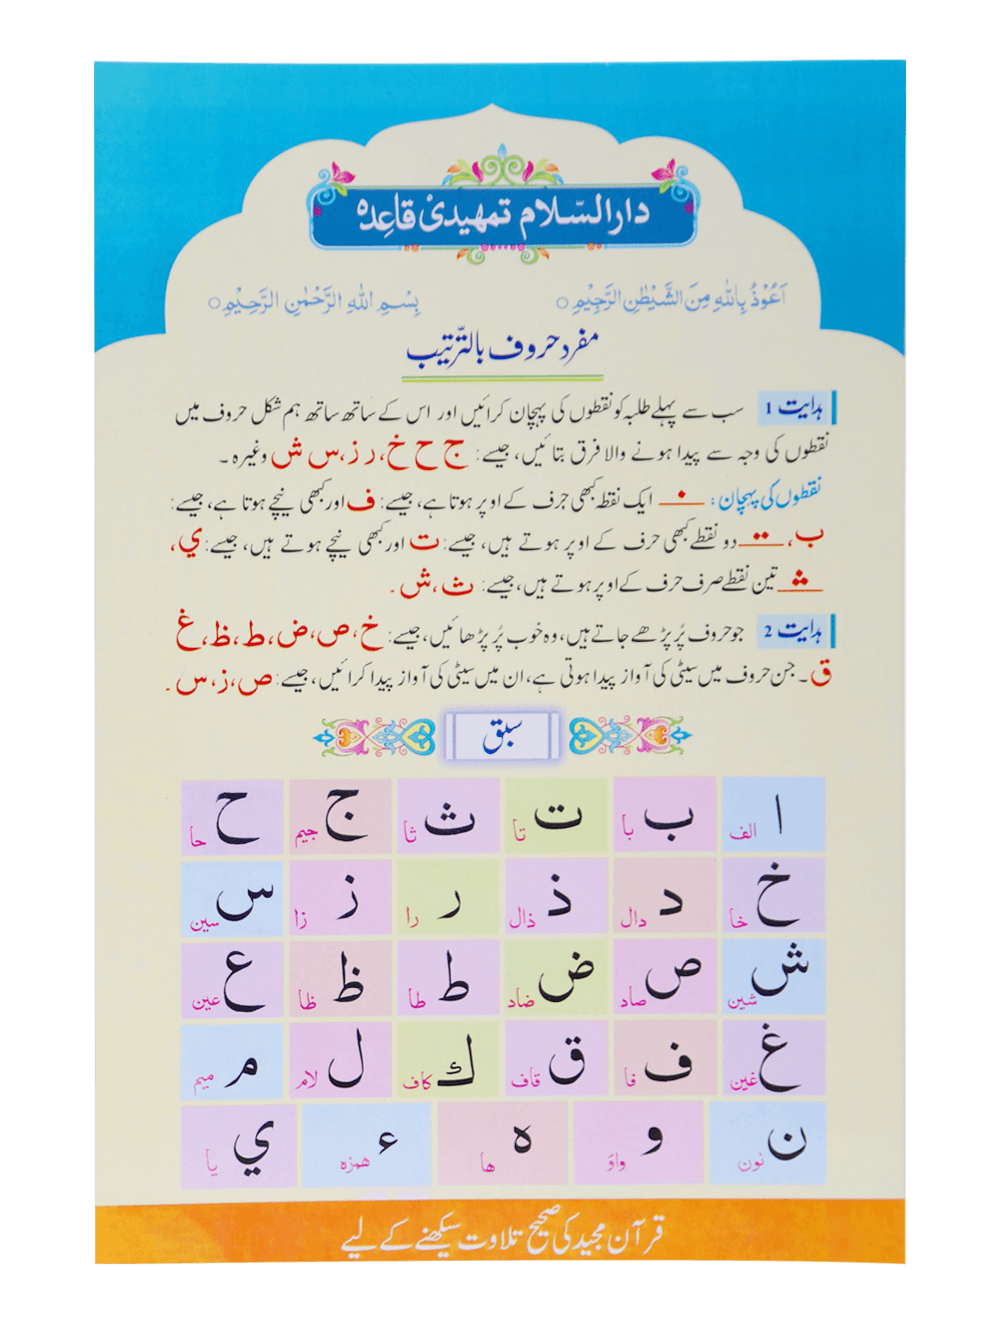 دارالسّلام تمهیدی قاعِدہ
اَعُوْذُ بِاللّٰهِ مِنَ الشَّيْطٰنِ الرَّجِيْمِ ○ بِسْمِ اللّٰهِ الرَّحْمٰنِ الرَّحِيْمِ ○
مفرد حروف بالترّتیب
ہدایت 1 سب سے پہلے طلبہ کو نقطوں کی پہچان کرائیں اور اس کے ساتھ ساتھ ہم شکل حروف میں
نقطوں کی وجہ سے پیدا ہونے والا فرق بتائیں، جیسے: ج ح خ، ر ز، س ش وغیرہ۔
نقطوں کی پہچان: ایک نقطہ کبھی حرف کے اوپر ہوتا ہے، جیسے: ف اور کبھی نیچے ہوتا ہے، جیسے:
ب، دو نقطے کبھی حرف کے اوپر ہوتے ہیں، جیسے: ت اور کبھی نیچے ہوتے ہیں، جیسے: ي،
تین نقطے صرف حرف کے اوپر ہوتے ہیں، جیسے: ث، ش۔
ہدایت 2 جو حروف پُر پڑھے جاتے ہیں، وہ خوب پُر پڑھائیں، جیسے: خ، ص، ض، ط، ظ، غ
ق۔ جن حروف میں سیٹی کی آواز پیدا ہوتی ہے، ان میں سیٹی کی آواز پیدا کرائیں، جیسے: ص، ز، س۔
سبق
ا الف ب با ت تا ث ثا ج جیم ح حا
خ خا د دال ذ ذال ر را ز زا س سین
ش شین ص صاد ض ضاد ط طا ظ ظا ع عین
غ غین ف فا ق قاف ك کاف ل لام م میم
ن نون و واؤ ه ھا ء ھمزہ ي یا
قرآن مجید کی صحیح تلاوت سیکھنے کے لیے